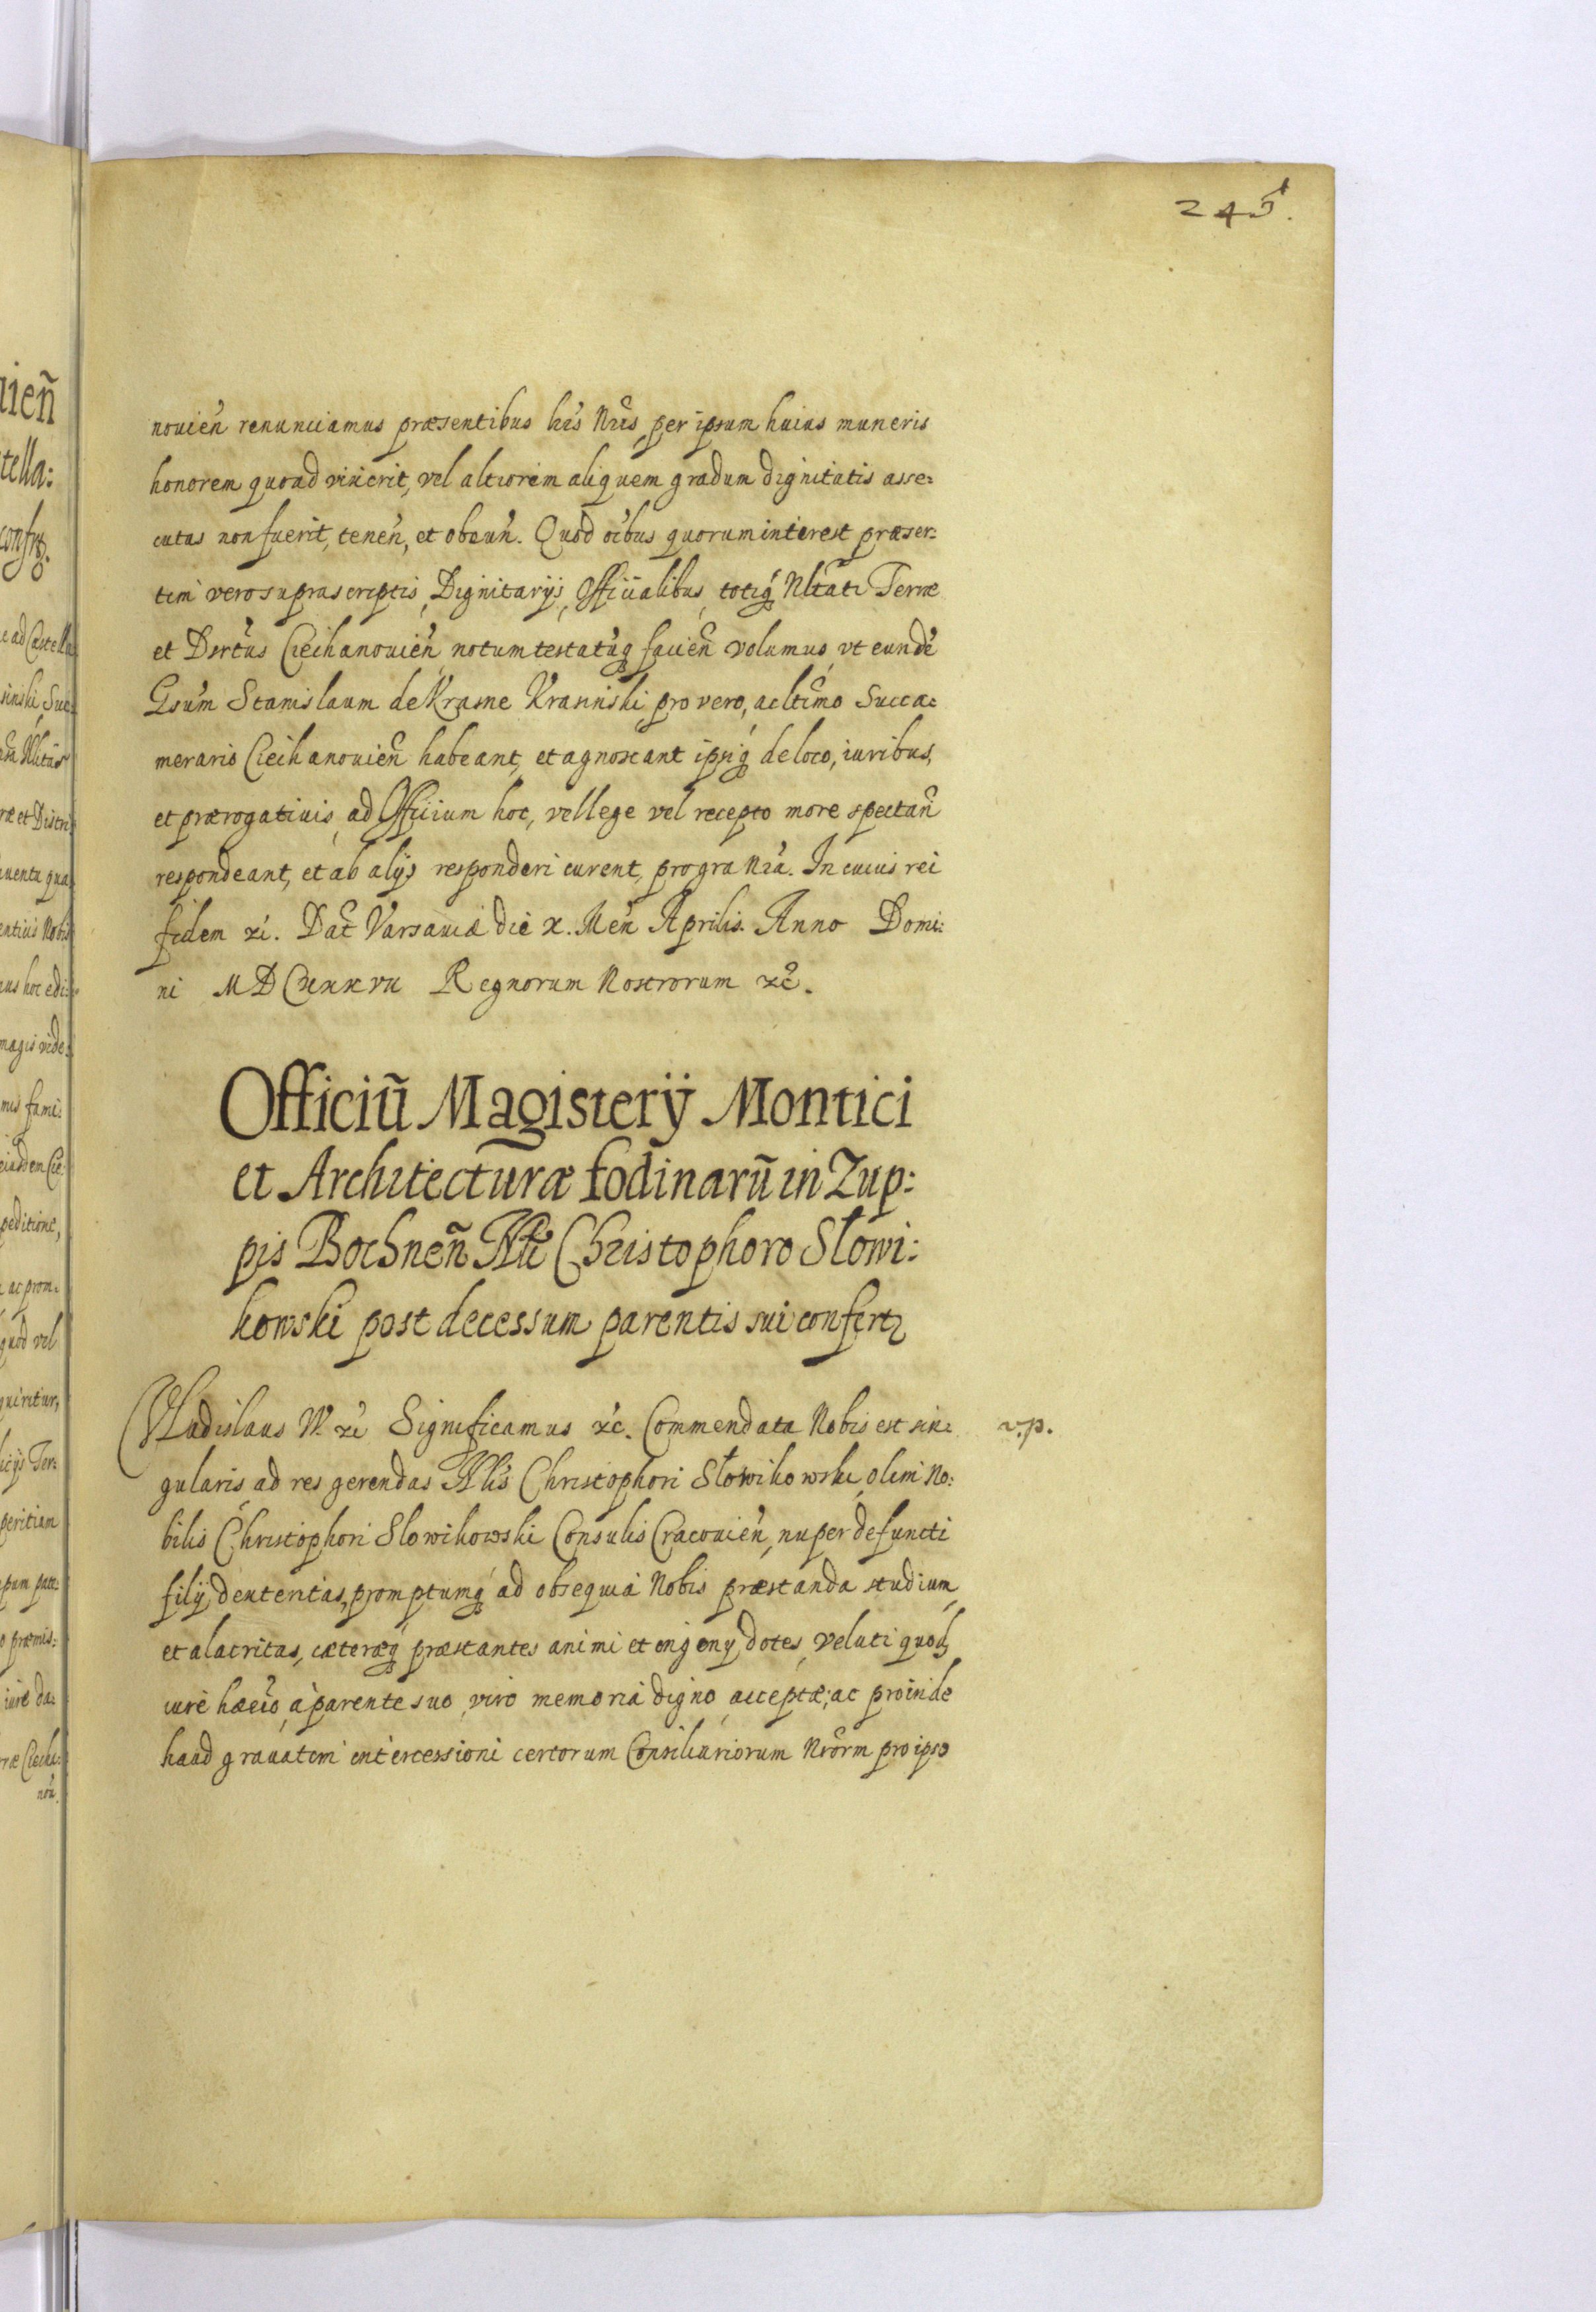 245.
nouien̄ renunciamus præsentibus lr̄is Nr̄is, per ipsum huius muneris
honorem quoad vixerit, vel altiorem aliquem gradum dignitatis asse:
cutus non fuerit, tenen̄, et obeun̄. Quod oībus quorum interest præser:
tim vero suprascriptis, Dignitarijs, Officialibus, totiq́ Nltāti Terræ
et Dsrtūs Ciechanouien̄ notum testatūq facien̄ volumus, vt eundē
Gsūm Stanislaum de Krasne Krasinski pro vero, ac ltīmo Succa:
merario Ciechanouien̄ habeant, et agnoscant ipsiq́ de loco, iuribus,
et prærogatiuis, ad Officium hoc, vel lege vel recepto more spectan̄
respondeant, et ab alijs responderi curent, pro gra Nr̄a. In cuius rei
fidem xć. Dat̄ Varsauiæ die X. Men̄ Aprilis. Anno Domi:
ni MDCXXXVII Regnorum Nostrorum xc̄.
Officiū Magisterÿ Montici
et Architecturæ fodinarū in Zup:
pis Bochnen̄ Nli Christophoro Słowi:
kowski post decessum parentis sui confertr
Vladislaus IV. xć Significamus xć. Commendata Nobis est sin:
v.p.
gularis ad res gerendas Nlis Christophori Słowikowski, olim No:
bilis Christophori Slowikowski Consulis Cracouien̄, nuper defuncti
filij, dexteritas, promptumq́ ad obsequia Nobis præstanda studium,
et alacritas, cæteræq́ præstantes animi et ingenÿ dotes, veluti quodā
iure hæēio, a parente suo, viro memoria digno, acceptæ; ac proinde
haud grauatim intercessioni certorum Consiliariorum Nrōrm pro ipso